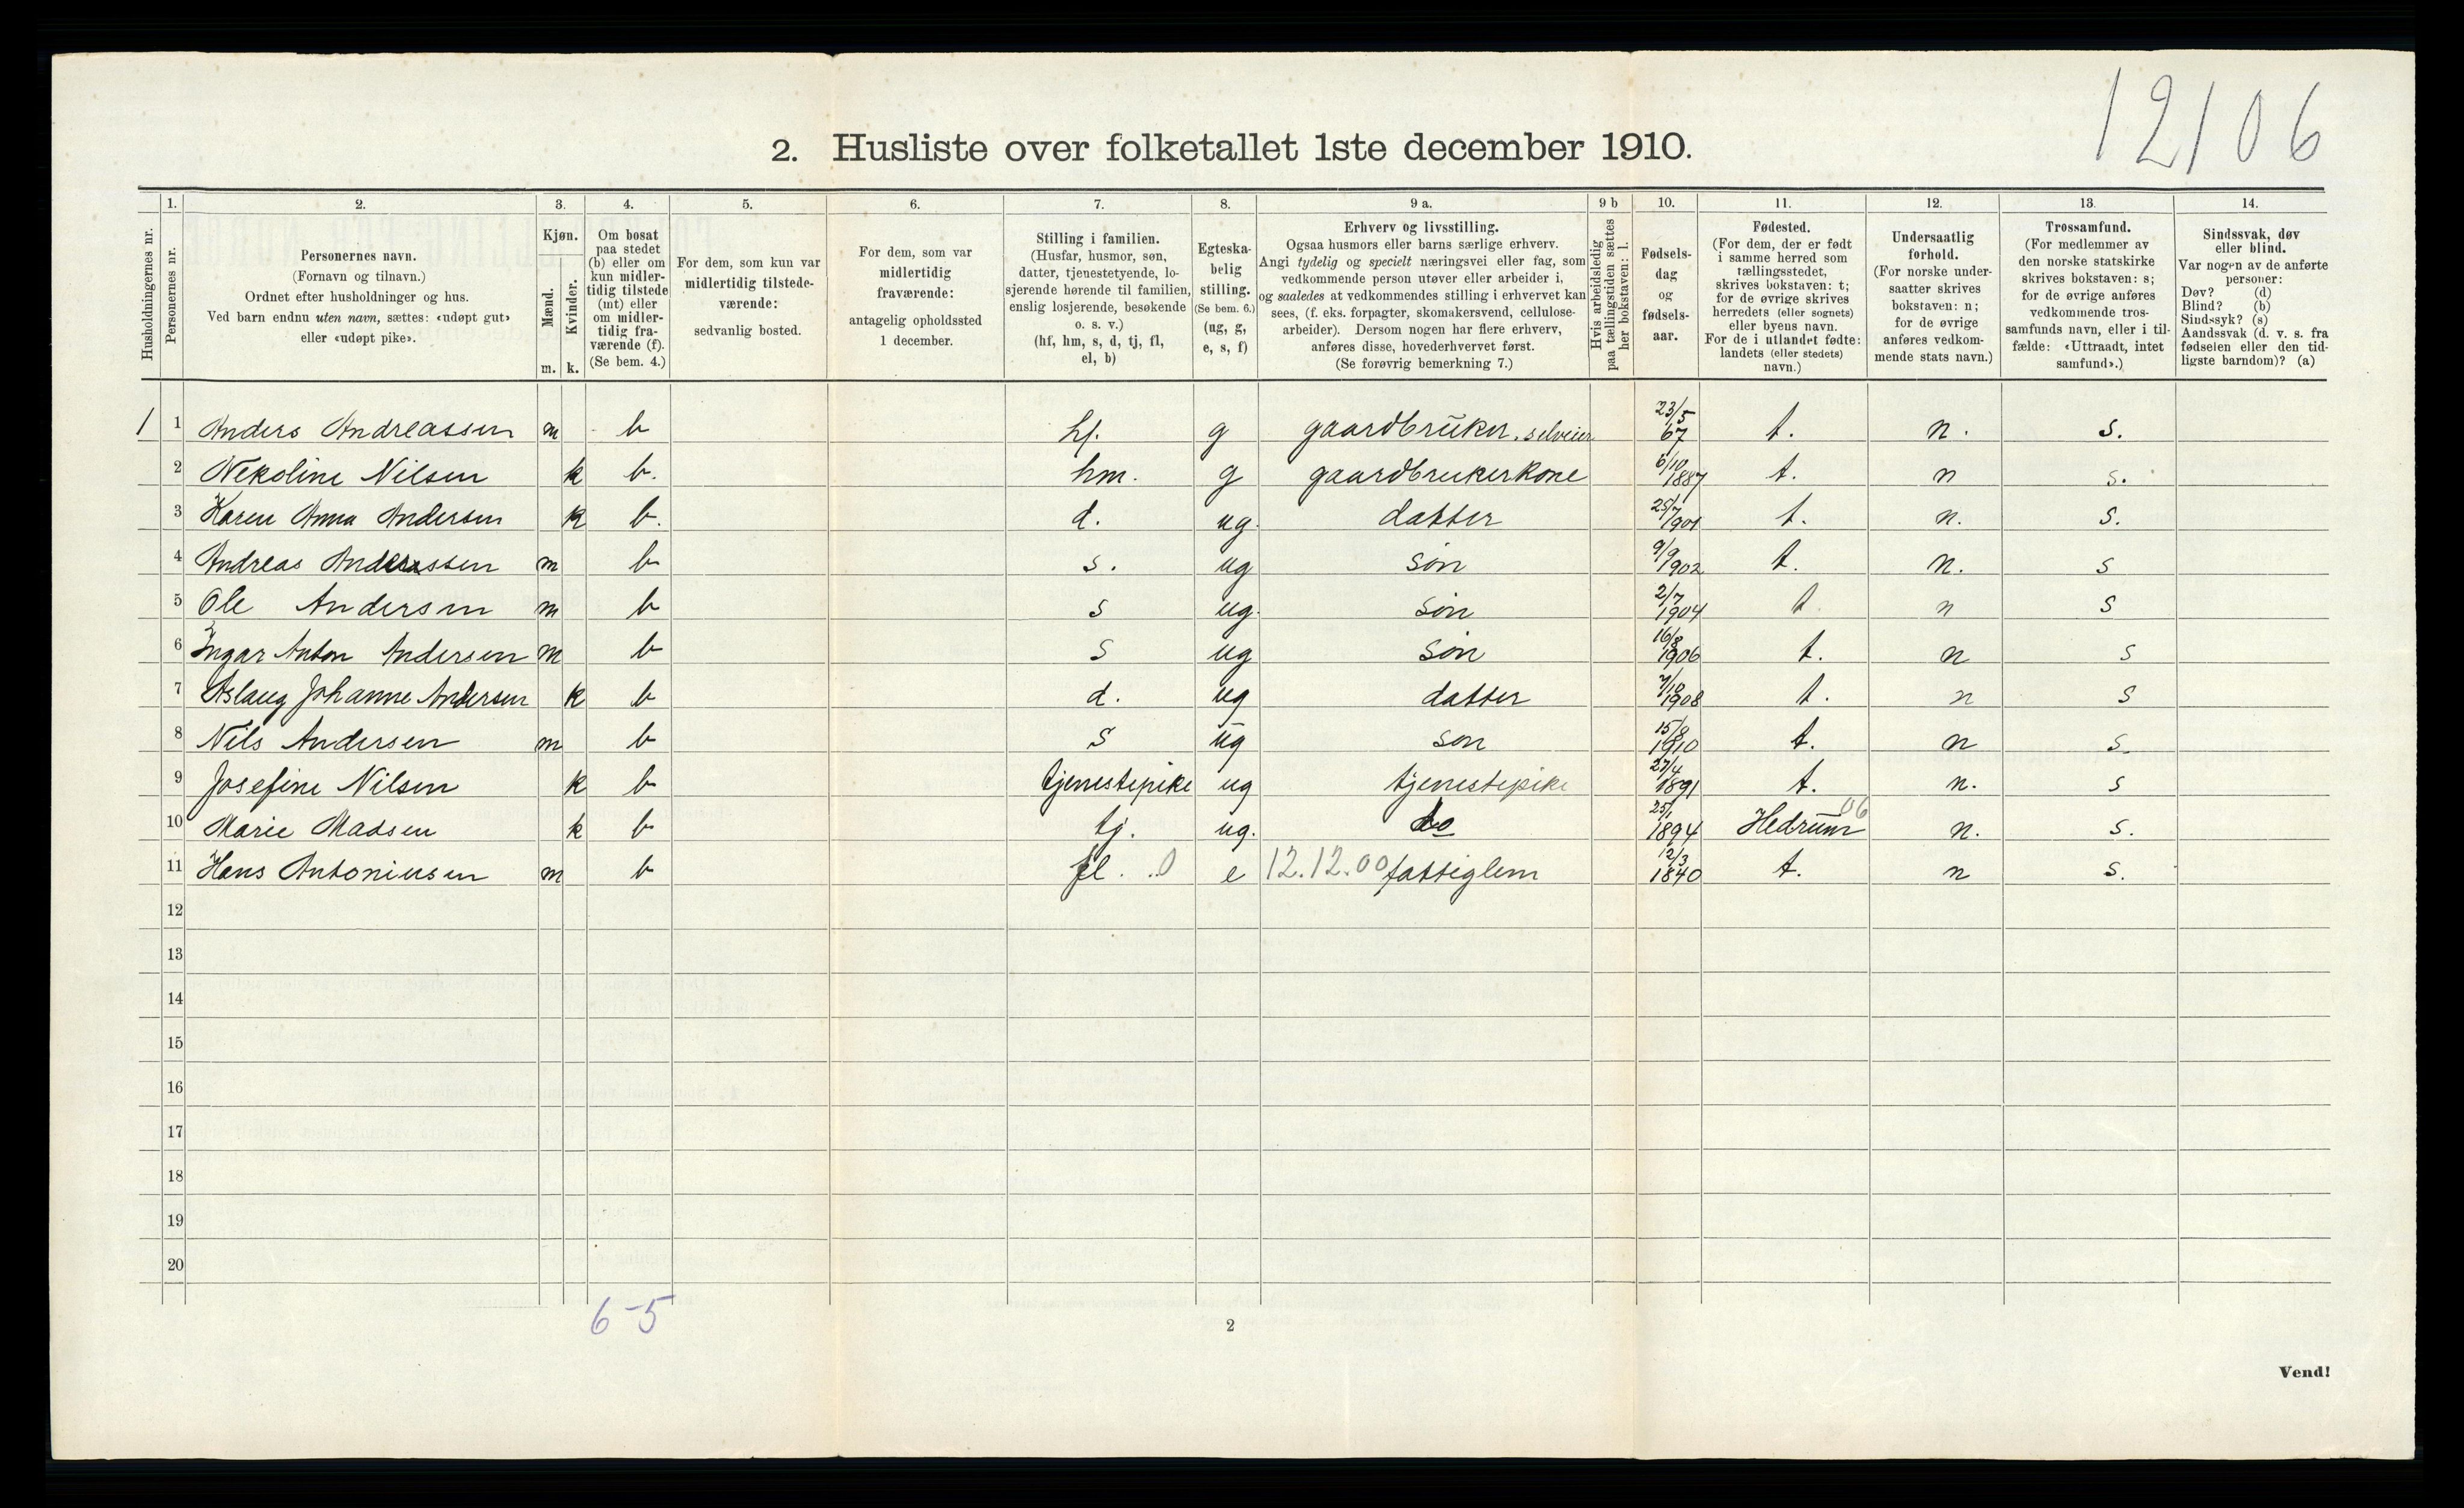 12106
2. Husliste over folketallet 1ste december 1910.
Husholdningernes nr.
1. Personernes nr.
2. Personernes navn.
(Fornavn og tilnavn.)
Ordnet efter husholdninger og hus.
Ved barn endnu uten navn, sættes: «udøpt gut»
eller «udøpt pike».
3. Kjøn.
Mænd. m.
Kvinder. k.
4. Om bosat
paa stedet
(b) eller om
kun midler-
tidig tilstede
(mt) eller
om midler-
tidig fra-
værende (f).
(Se bem. 4.)
5. For dem, som kun var
midlertidig tilstede-
værende:
sedvanlig bosted.
6. For dem, som var
midlertidig
fraværende:
antagelig opholdssted
1 december.
7. Stilling i familien.
(Husfar, husmor, søn,
datter, tjenestetyende, lo-
sjerende hørende til familien,
enslig losjerende, besøkende
o. s. v.)
(hf, hm, s, d, tj, fl,
el, b)
8. Egteska-
belig
stilling.
(Se bem. 6.)
(ug, g,
e, s, f)
9 a. Erhverv og livsstilling.
Ogsaa husmors eller barns særlige erhverv.
Angi tydelig og specielt næringsvei eller fag, som
vedkommende person utøver eller arbeider i,
og saaledes at vedkommendes stilling i erhvervet kan
sees, (f. eks. forpagter, skomakersvend, cellulose-
arbeider). Dersom nogen har flere erhverv,
anføres disse, hovederhvervet først.
(Se forøvrig bemerkning 7.)
9 b Hvis arbeidsledig
paa tællingstiden sættes
her bokstaven: l.
10. Fødsels-
dag
og
fødsels-
aar.
11. Fødested.
(For dem, der er født
i samme herred som
tællingsstedet,
skrives bokstaven: t;
for de øvrige skrives
herredets (eller sognets)
eller byens navn.
For de i utlandet fødte:
landets (eller stedets)
navn.)
12. Undersaatlig
forhold.
(For norske under-
saatter skrives
bokstaven: n;
for de øvrige
anføres vedkom-
mende stats navn.)
13. Trossamfund.
(For medlemmer av
den norske statskirke
skrives bokstaven: s;
for de øvrige anføres
vedkommende tros-
samfunds navn, eller i til-
fælde: «Uttraadt, intet
samfund».)
14. Sindssvak, døv
eller blind.
Var nogen av de anførte
personer:
Døv? (d)
Blind? (b)
Sindssyk? (s)
Aandssvak (d. v. s. fra
fødselen eller den tid-
ligste barndom)? (a)
1 1 Anders Andreassen m b hf. g gaardbruker, selveier 23/5 67 t. n. s.
2 Nekoline Nilsen k b. hm. g gaardbrukerkone 6/10 1887 t. n s.
3 Karen Anna Andersen k b. d. ug. datter 25/7 1901 t. n. s.
4 Andreas Anderssen m b s. ug søn 9/9 902 t. n. s
5 Ole Andersen m b s ug. søn 2/7 1904 t n s
6 Ingar Anton Andersen m b s ug søn 16/8 1906 t. n s
7 Aslaug Johanne Andersen k b d. ug datter 7/10 1908 t. n s
8 Nils Andersen m b s ug søn 15/8 1910 t. n s.
9 Josefine Nilsen k b tjenestepike ug tjenestepike 27/4 1891 t. n. s
10 Marie Madsen k b tj. ug. do 25/1 1894 Hedrum 06 n. s.
11 Hans Antoniusen m b fl. .0 e 12.12.00 fattiglem 12/3 1840 t. n s.
12
13
14
15
16
17
18
19
20
6-5
2
Vend!